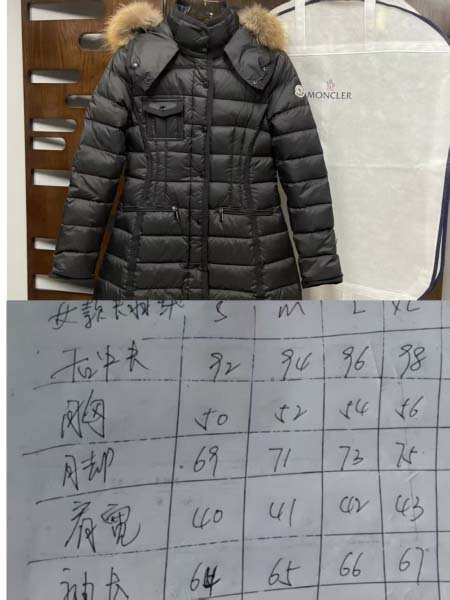 MONCLER
女款长羽绒 S M L XL
后中长 92 94 96 98
胸 50 52 54 56
脚 69 71 73 75
肩宽 40 41 42 43
袖长 64 65 66 67